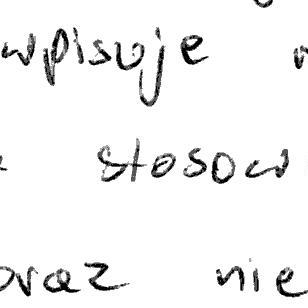 wpisuje
stosow
oraz nie